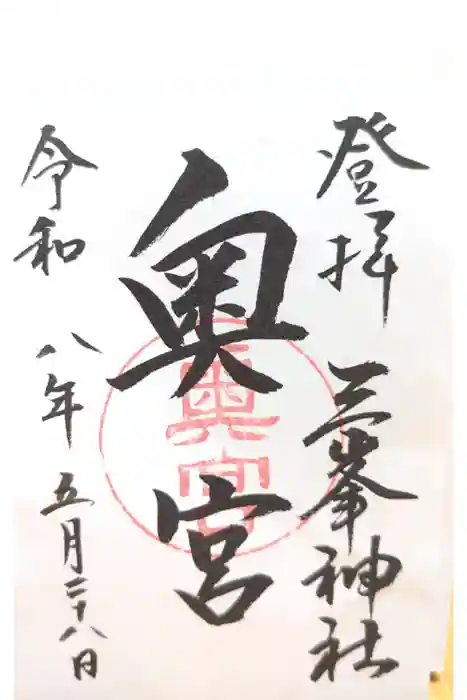 登拝 三峯神社
奥宮
奥宮
令和八年五月二十八日